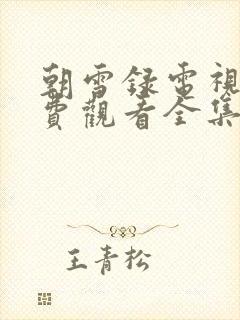 朝雪録電視
費觀看全集
王青松